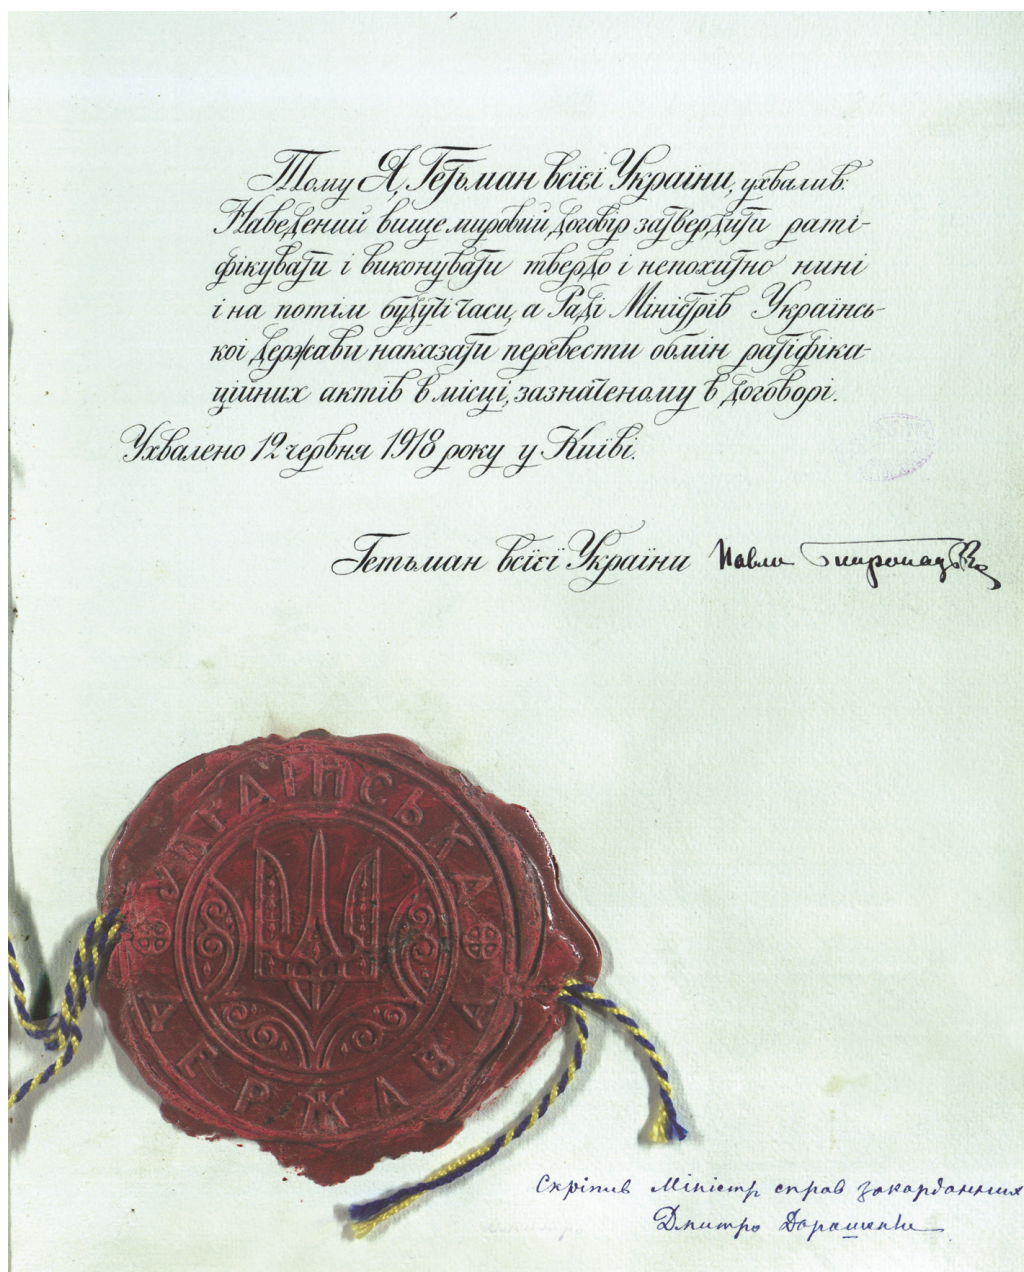 Тому Я, Гетьман всієї України, ухвалив:
Наведений вище мировий договір затвердити раті-
фікувати і виконувати твердо і непохитно нині
і на потім будучі часи, а Раді Міністрів Українсь-
коі Держави наказати перевести обмін ратіфіка-
ційних актів в місці, зазначеному в договорі.
Ухвалено 12 червня 1918 року у Київі.
Гетьман всієї України Павло Скоропадський
УКРАЇНСЬКА
ДЕРЖАВА
Скріпив Міністр справ закордонних
Дмитро Дорошенко